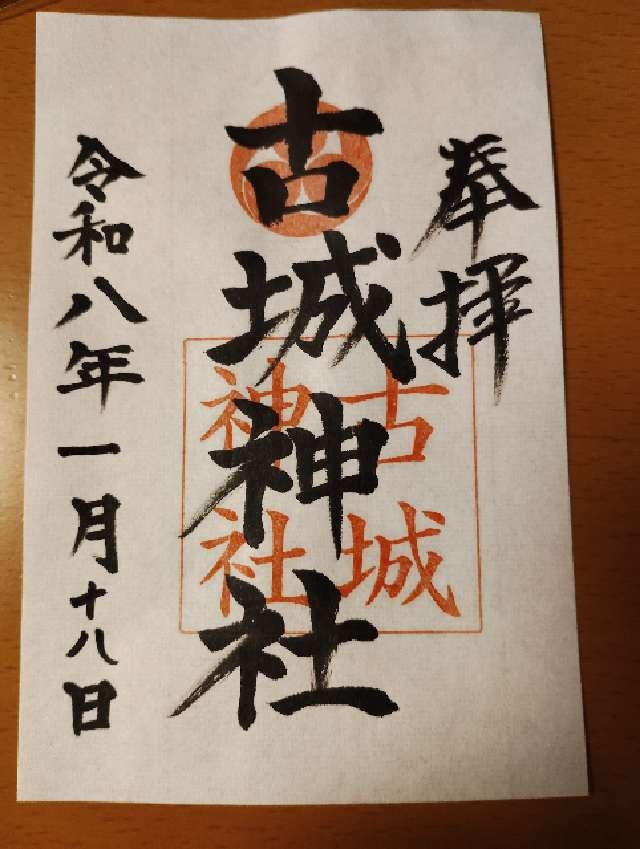 奉拝
古城神社
古城
神社
令和八年一月十八日